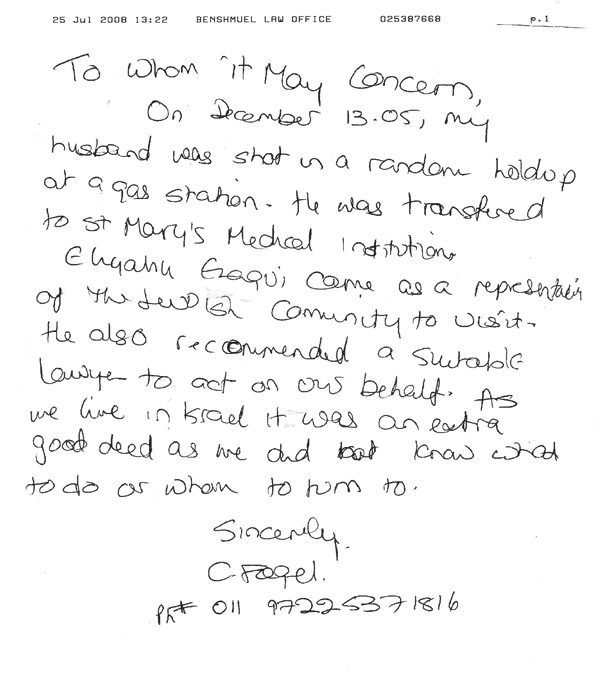 25 Jul 2008 13:22 BENSHMUEL LAW OFFICE 025387668 p.1
To Whom it May Concern,
On December 13.05, my
husband was shot in a random holdup
at a gas station. He was transfered
to St Mary's Medical Institution.
Eliyahu Ezagui came as a representative
of the Jewish Comunity to visit.
He also recommended a suitable
lawyer to act on our behalf. As
we live in Israel it was an extra
good deed as we did not know what
to do or whom to turn to.
Sincerly.
C. Fogel.
Ph# 011 97225371816